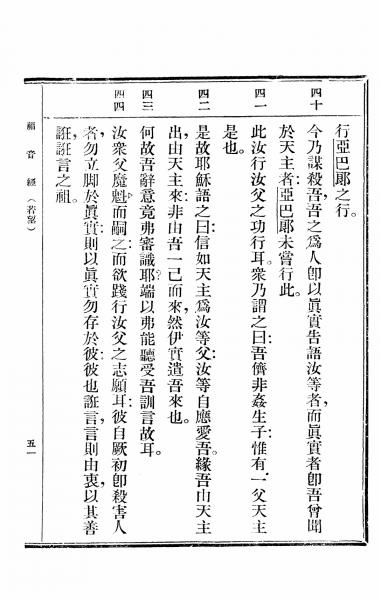 行亞巴郞之行。
四十
今乃謀殺吾、吾之爲人卽以眞實告語汝等者、而眞實者卽吾曾聞
於天主者、亞巴郞未嘗行此。
四一
此汝行汝父之功行耳。衆乃謂之曰、吾儕非姦生子、惟有一父天主
是也。
四二
是故耶穌語之曰、信如天主爲汝等父、汝等自應愛吾。緣吾由天主
出、由天主來、非由吾一己而來、然伊實遣吾來也。
四三
何故吾辭意竟弗審識耶、端以弗能聽受吾訓言故耳。
四四
汝衆父魔魁、而嗣之、而欲踐行汝父之志願耳、彼自厥初卽殺害人
者、勿立脚於眞實、則以眞實勿存於彼、彼也誑言、言則由衷、以其善
誑、誑言之祖。
福音經（若望）
五一